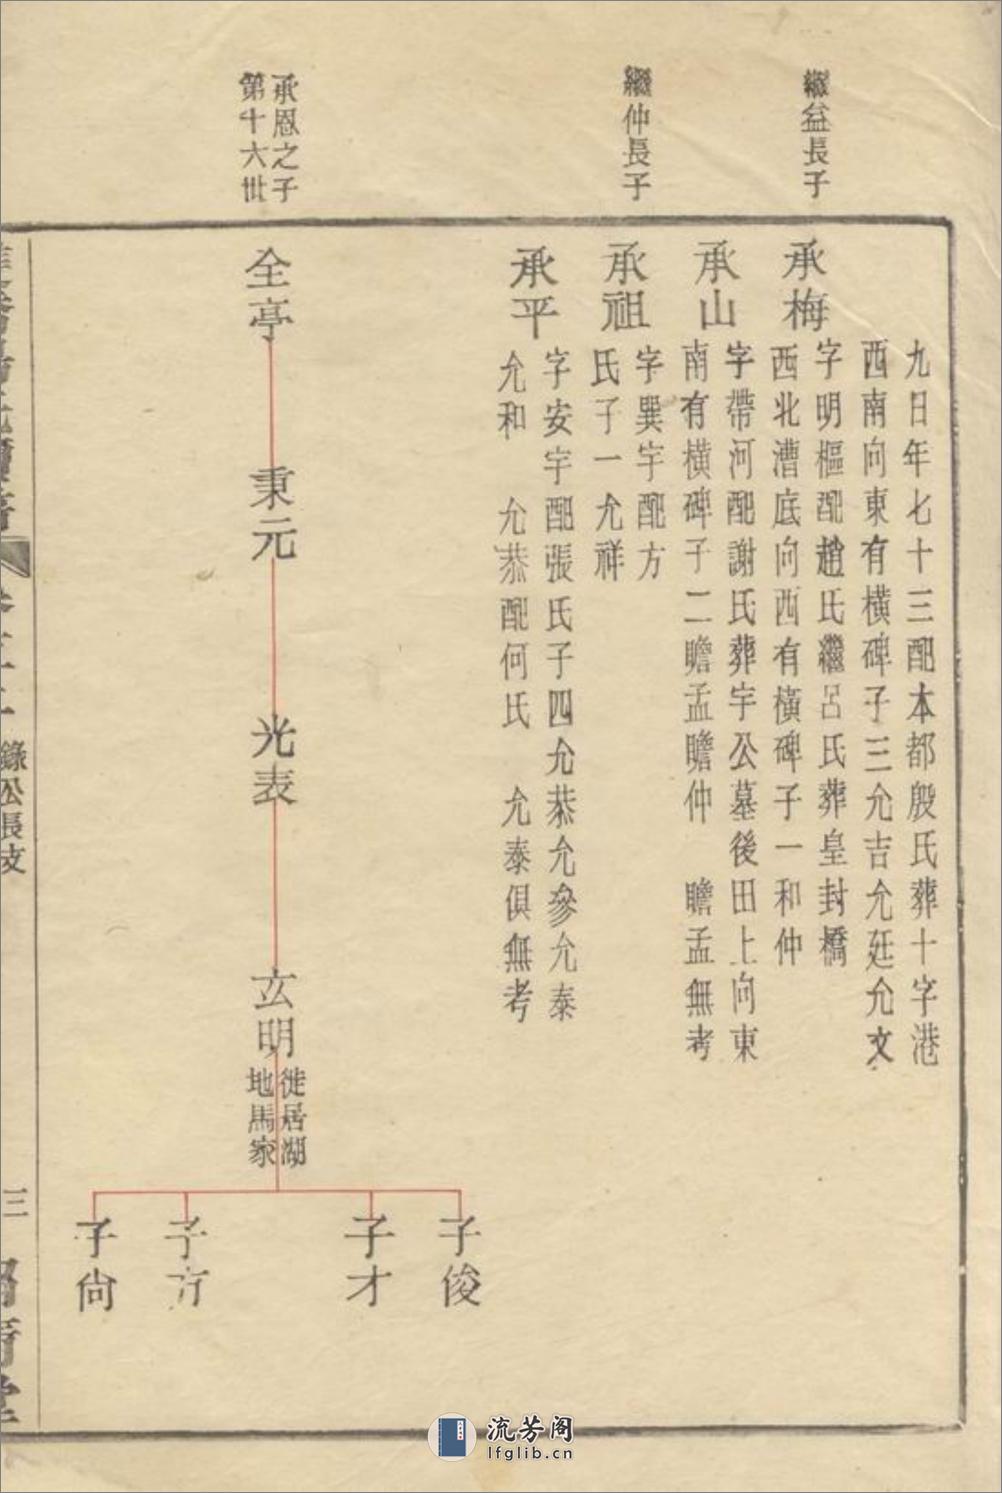 繼益長子
九日年七十三配本都殷氏葬十字港
西南向東有橫碑子三允吉允廷允文
承梅
字明樞配趙氏繼呂氏葬皇封橋
西北漕底向西有橫碑子一和仲
承山
字帶河配謝氏葬宇公墓後田上向東
南有橫碑子二瞻孟瞻仲 瞻孟無考
繼仲長子
承祖
字巽宇配方
氏子一允祥
承平
字安宇配張氏子四允恭允參允泰
允和 允恭配何氏 允泰俱無考
承恩之子
第十六世
全亭
秉元
光表
玄明
徙居湖
地馬家
子俊
子才
子方
子尙
錄公長支
三
流芳阁
lfglib.cn